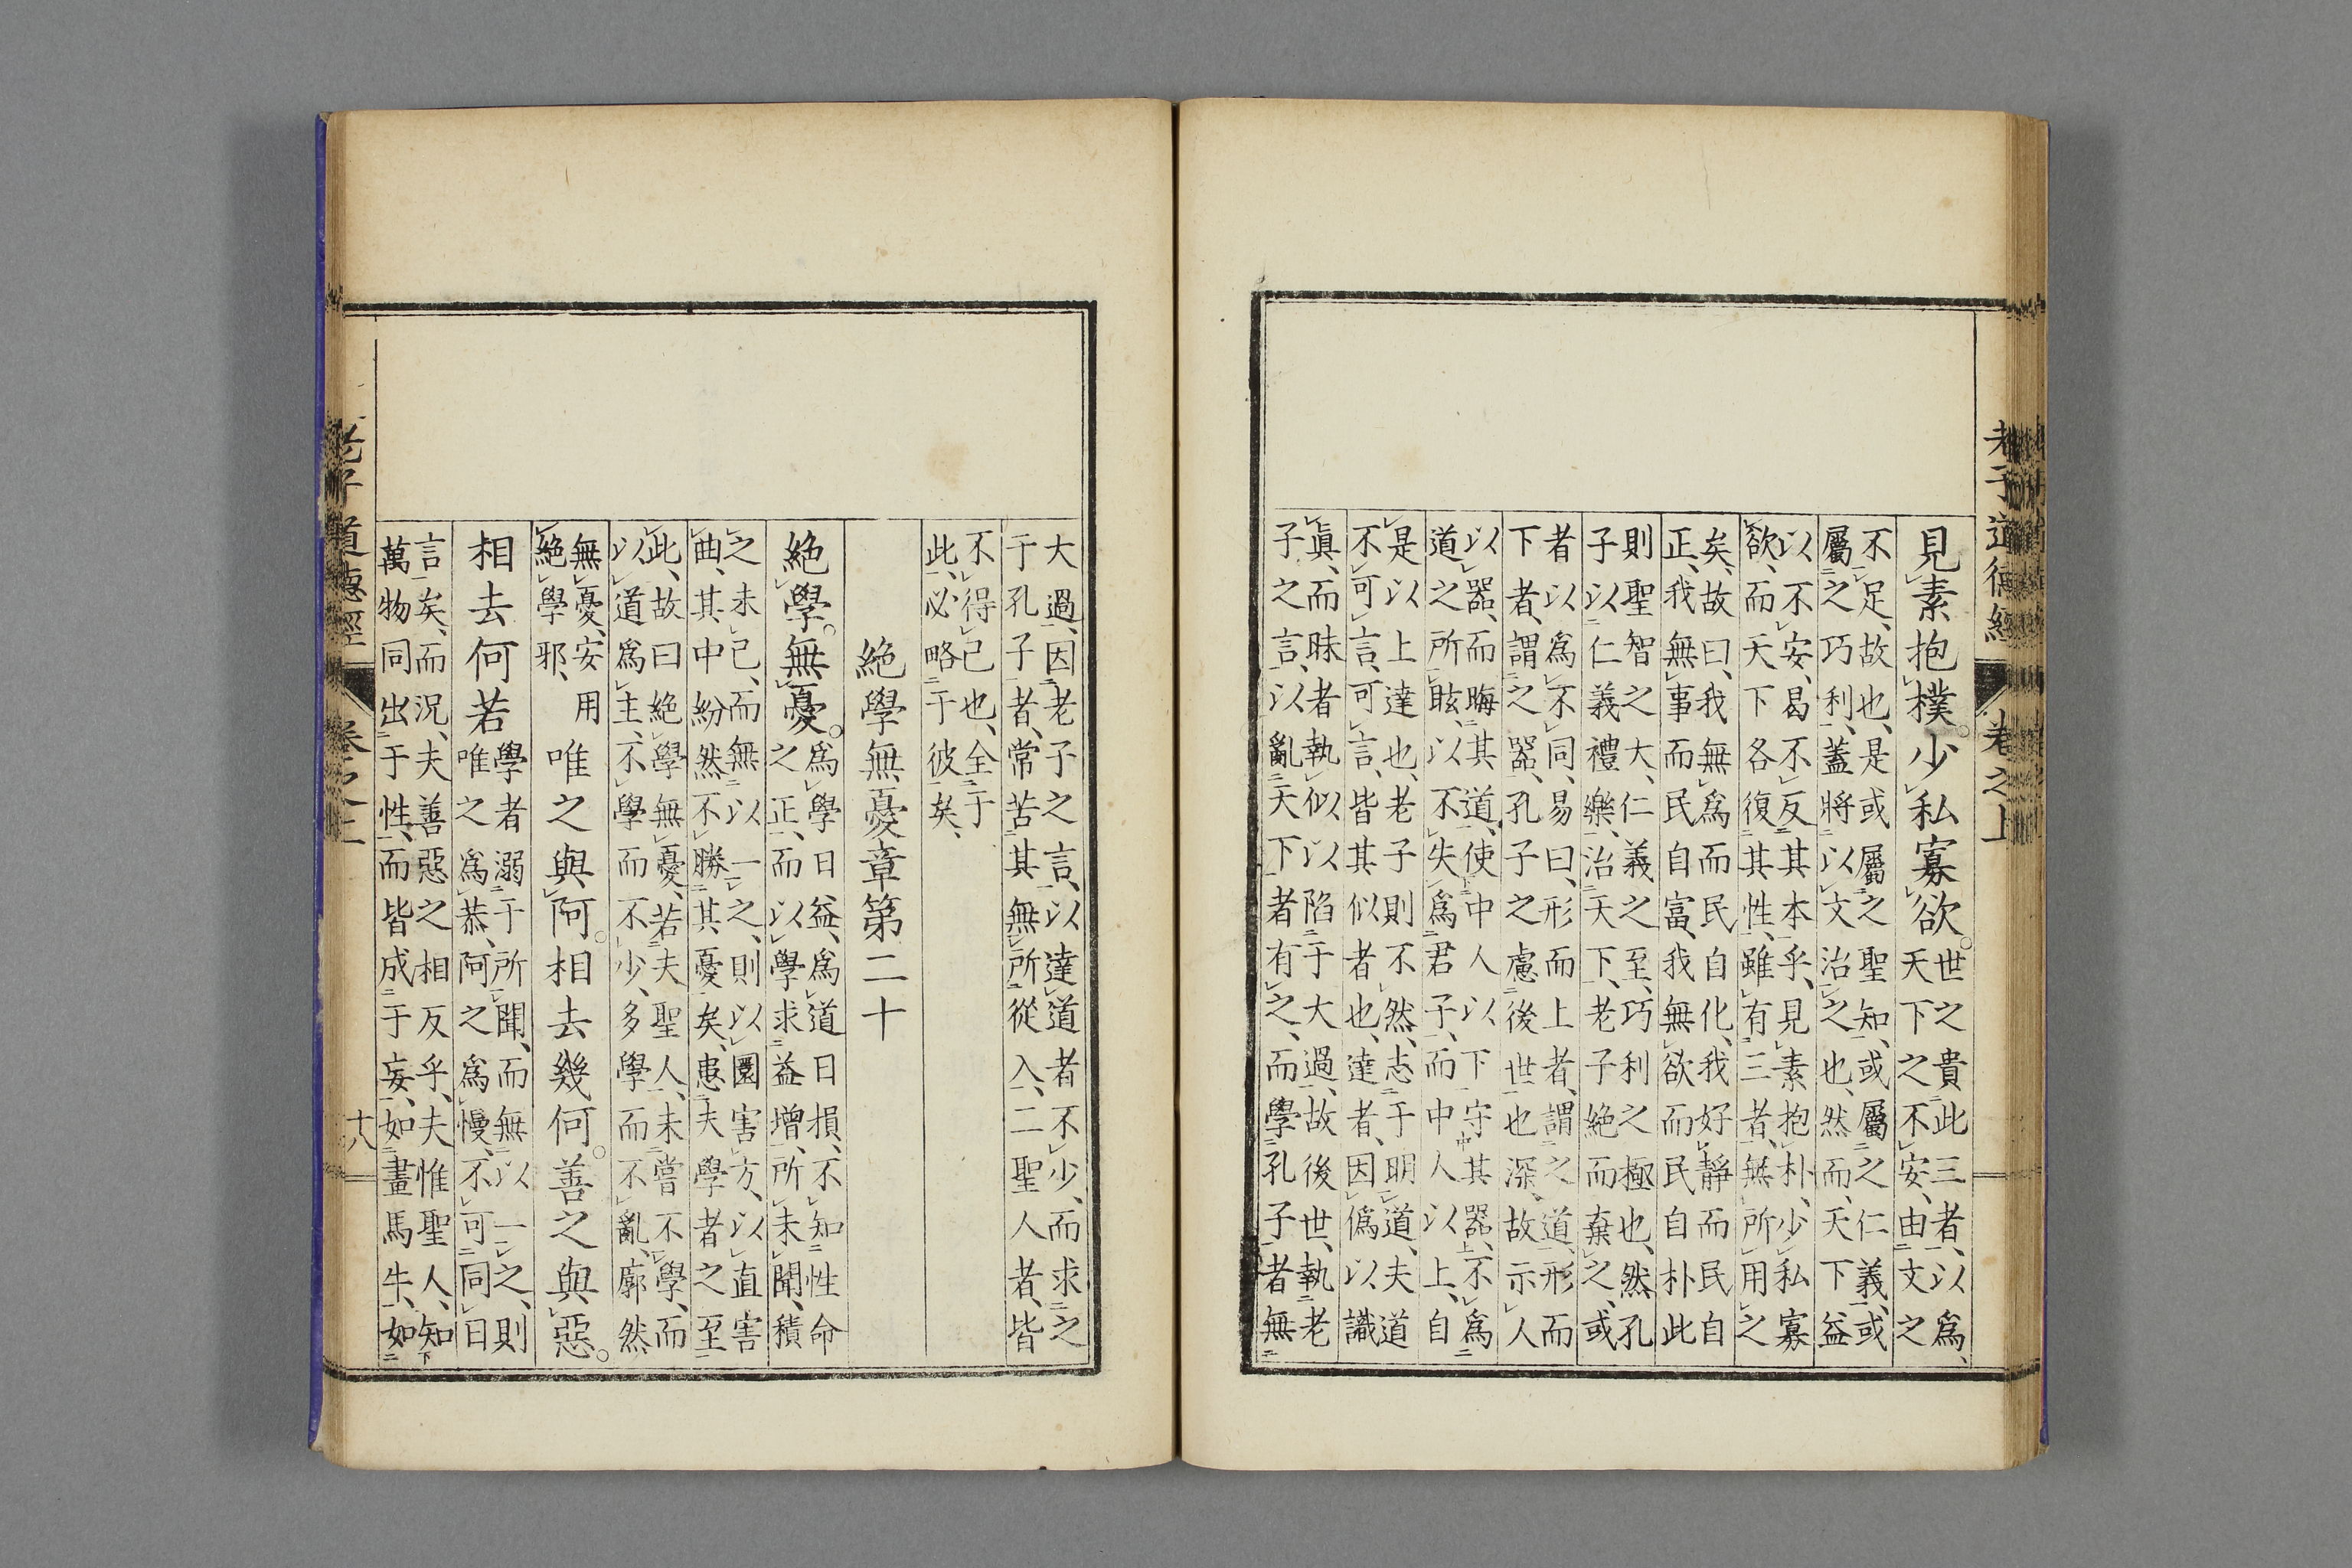 老子道德經 卷之上
見素抱樸。少私寡欲。世之貴此三者、以爲、
天下之不安、由文之
不足、故也、是或屬之聖知、或屬之仁義、或
屬之巧利、蓋將以文治之也、然而、天下益
以不安、曷不反其本乎、見素抱朴、少私寡
欲、而天下各復其性、雖有三者、無所用之
矣、故曰、我無爲而民自化、我好靜而民自
正、我無事而民自富、我無欲而民自朴此
則聖智之大、仁義之至、巧利之極也、然孔
子以仁義禮樂、治天下、老子絶而棄之、或
者以爲不同、易曰、形而上者、謂之道、形而
下者、謂之器、孔子之慮後世也深、故示人
以器、而晦其道、使中人以下守其器、不爲
道之所眩、以不失爲君子、而中人以上、自
是以上達也、老子則不然、志于明道、夫道
不可言、可言、皆其似者也、達者、因僞以識
眞、而昧者執似以陷于大過、故後世、執老
子之言、以亂天下者有之、而學孔子者無
大過、因老子之言、以達道者不少、而求之
于孔子者、常苦其無所從入、二聖人者、皆
不得已也、全于
此、必略于彼矣、
絶學無憂章第二十
絶學。無憂。爲學日益、爲道日損、不知性命
之正、而以學求益增、所未聞、積
之未已、而無以一之、則以圜害方、以直害
曲、其中紛然不勝其憂矣、患夫學者之至
此、故曰絶學無憂、若夫聖人、未嘗不學、而
以道爲主、不學而不少、多學而不亂、廓然
無憂、安用
絶學邪、
唯之與阿。相去幾何。善之與惡。
相去何若
學者溺于所聞、而無以一之、則
唯之爲恭、阿之爲慢、不可同日
言矣、而況、夫善惡之相反乎、夫惟聖人、知
萬物同出于性、而皆成于妄、如畫馬牛、如
老子道德經 卷之上 十八